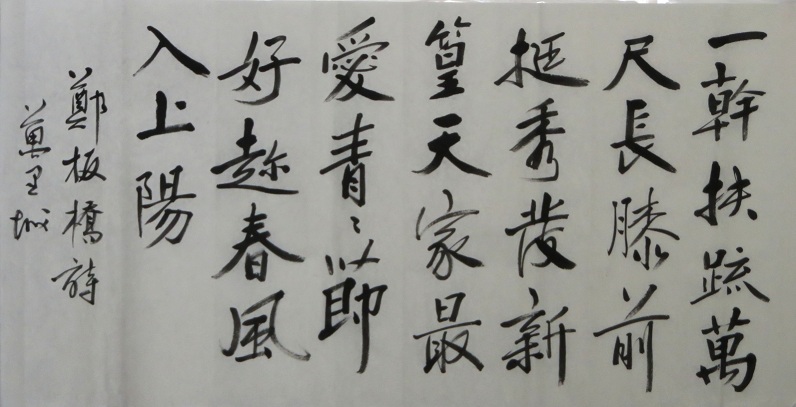 一幹扶疏萬
尺長膝前
挺秀發新
篁天家最
愛青〻節
好趁春風
入上陽
鄭板橋詩
萬里